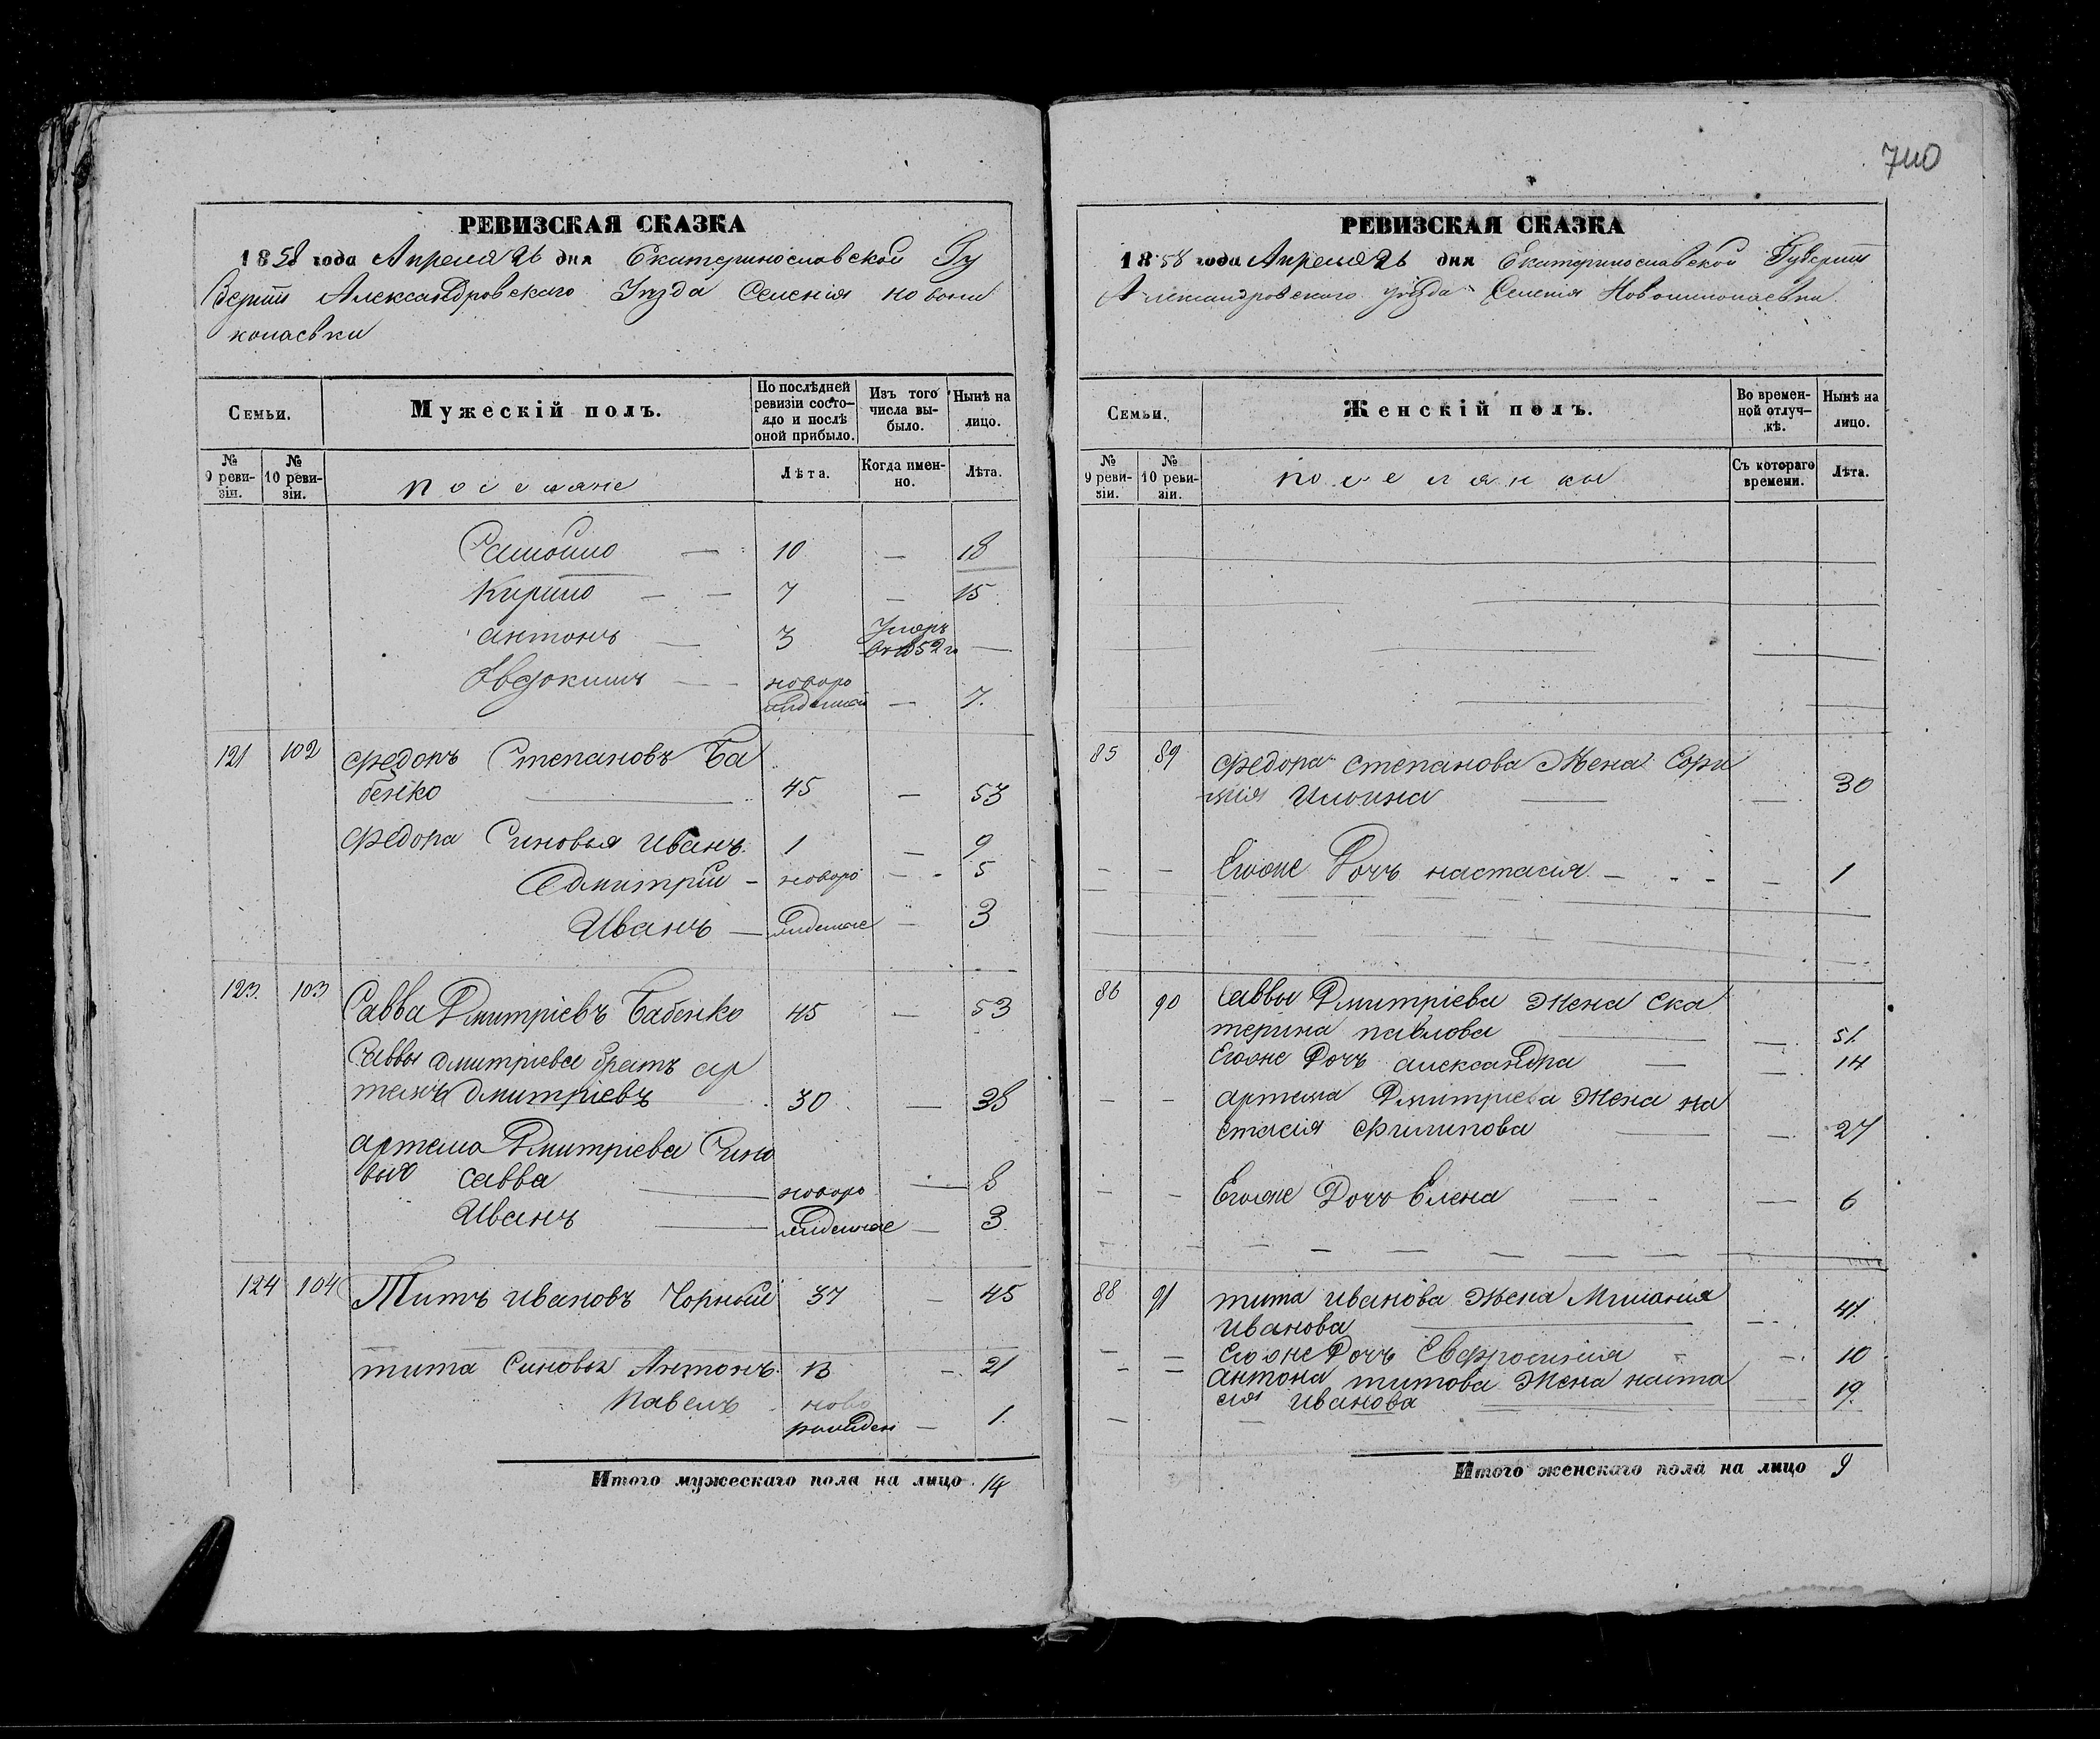 740
РЕВИЗСКАЯ СКАЗКА
1858 года Апреля 26 дня Екатеринославской Гу
Верніи Александровскаго Уѣзда Селенія новони
колаевки
Семьи.
Мужескій полъ.
По послѣдней ревизіи состо-яло и послѣ оной прибыло.
Изъ того числа вы-было.
Нынѣ на лицо.
№ 9 реви-зіи.
№ 10 реви-зіи.
поселяне
Лѣта.
Когда имен-но.
Лѣта.
Самойло — 10 — 18
Кирило — — 7 — 15
антонъ — 3 Умеръ въ 1852 г —
Овдокимъ — новоро жденной — 7.
121 102 Федоръ Степановъ Ба
бенко — 45 — 53
Федора Синовья иванъ 1 — 9
Дмитрій — новоро — 5
Иванъ — жденные — 3
123. 103 Савва Дмитріевъ Бабенко 45 — 53
Саввы дмитріева братъ ар
темъ дмитріевъ 30 — 38
артема Дмитріева Сино
вья савва — новоро — 8
Иванъ — жденные — 3.
124 104 Титъ ивановъ Чорный 37 — 45
тита Синовья Антонъ. 13 — 21
Павелъ ново
рожден — 1.
Итого мужескаго пола на лицо 14
РЕВИЗСКАЯ СКАЗКА
1858 года Апреля 26 дня Екатеринославской Губерніи
Александровскаго уѣзда Селенія Новониколаевки
Семьи.
Женскій полъ.
Во времен-ной отлуч-кѣ.
Нынѣ на лицо.
№ 9 реви-зіи.
№ 10 реви-зіи.
поселянки
Съ котораго времени.
Лѣта.
85 89 Федора степанова Жена
Ильина — 30
— — Егоже Дочъ настасія — 1
86 90 Саввы Дмитріева Жена Ека
терина павлова — 51.
Егоже Дочъ александра — 14
— — артема Дмитріева Жена на
стасія Филипова — 27
— — Егоже Дочъ Елена — 6
88 91 тита иванова Жена Миланія
иванова — 41.
— — Егоже Дочъ Евфросинія — 10
— — Антона титова Жена наста
сія иванова — 19.
Итого женскаго пола на лицо 9